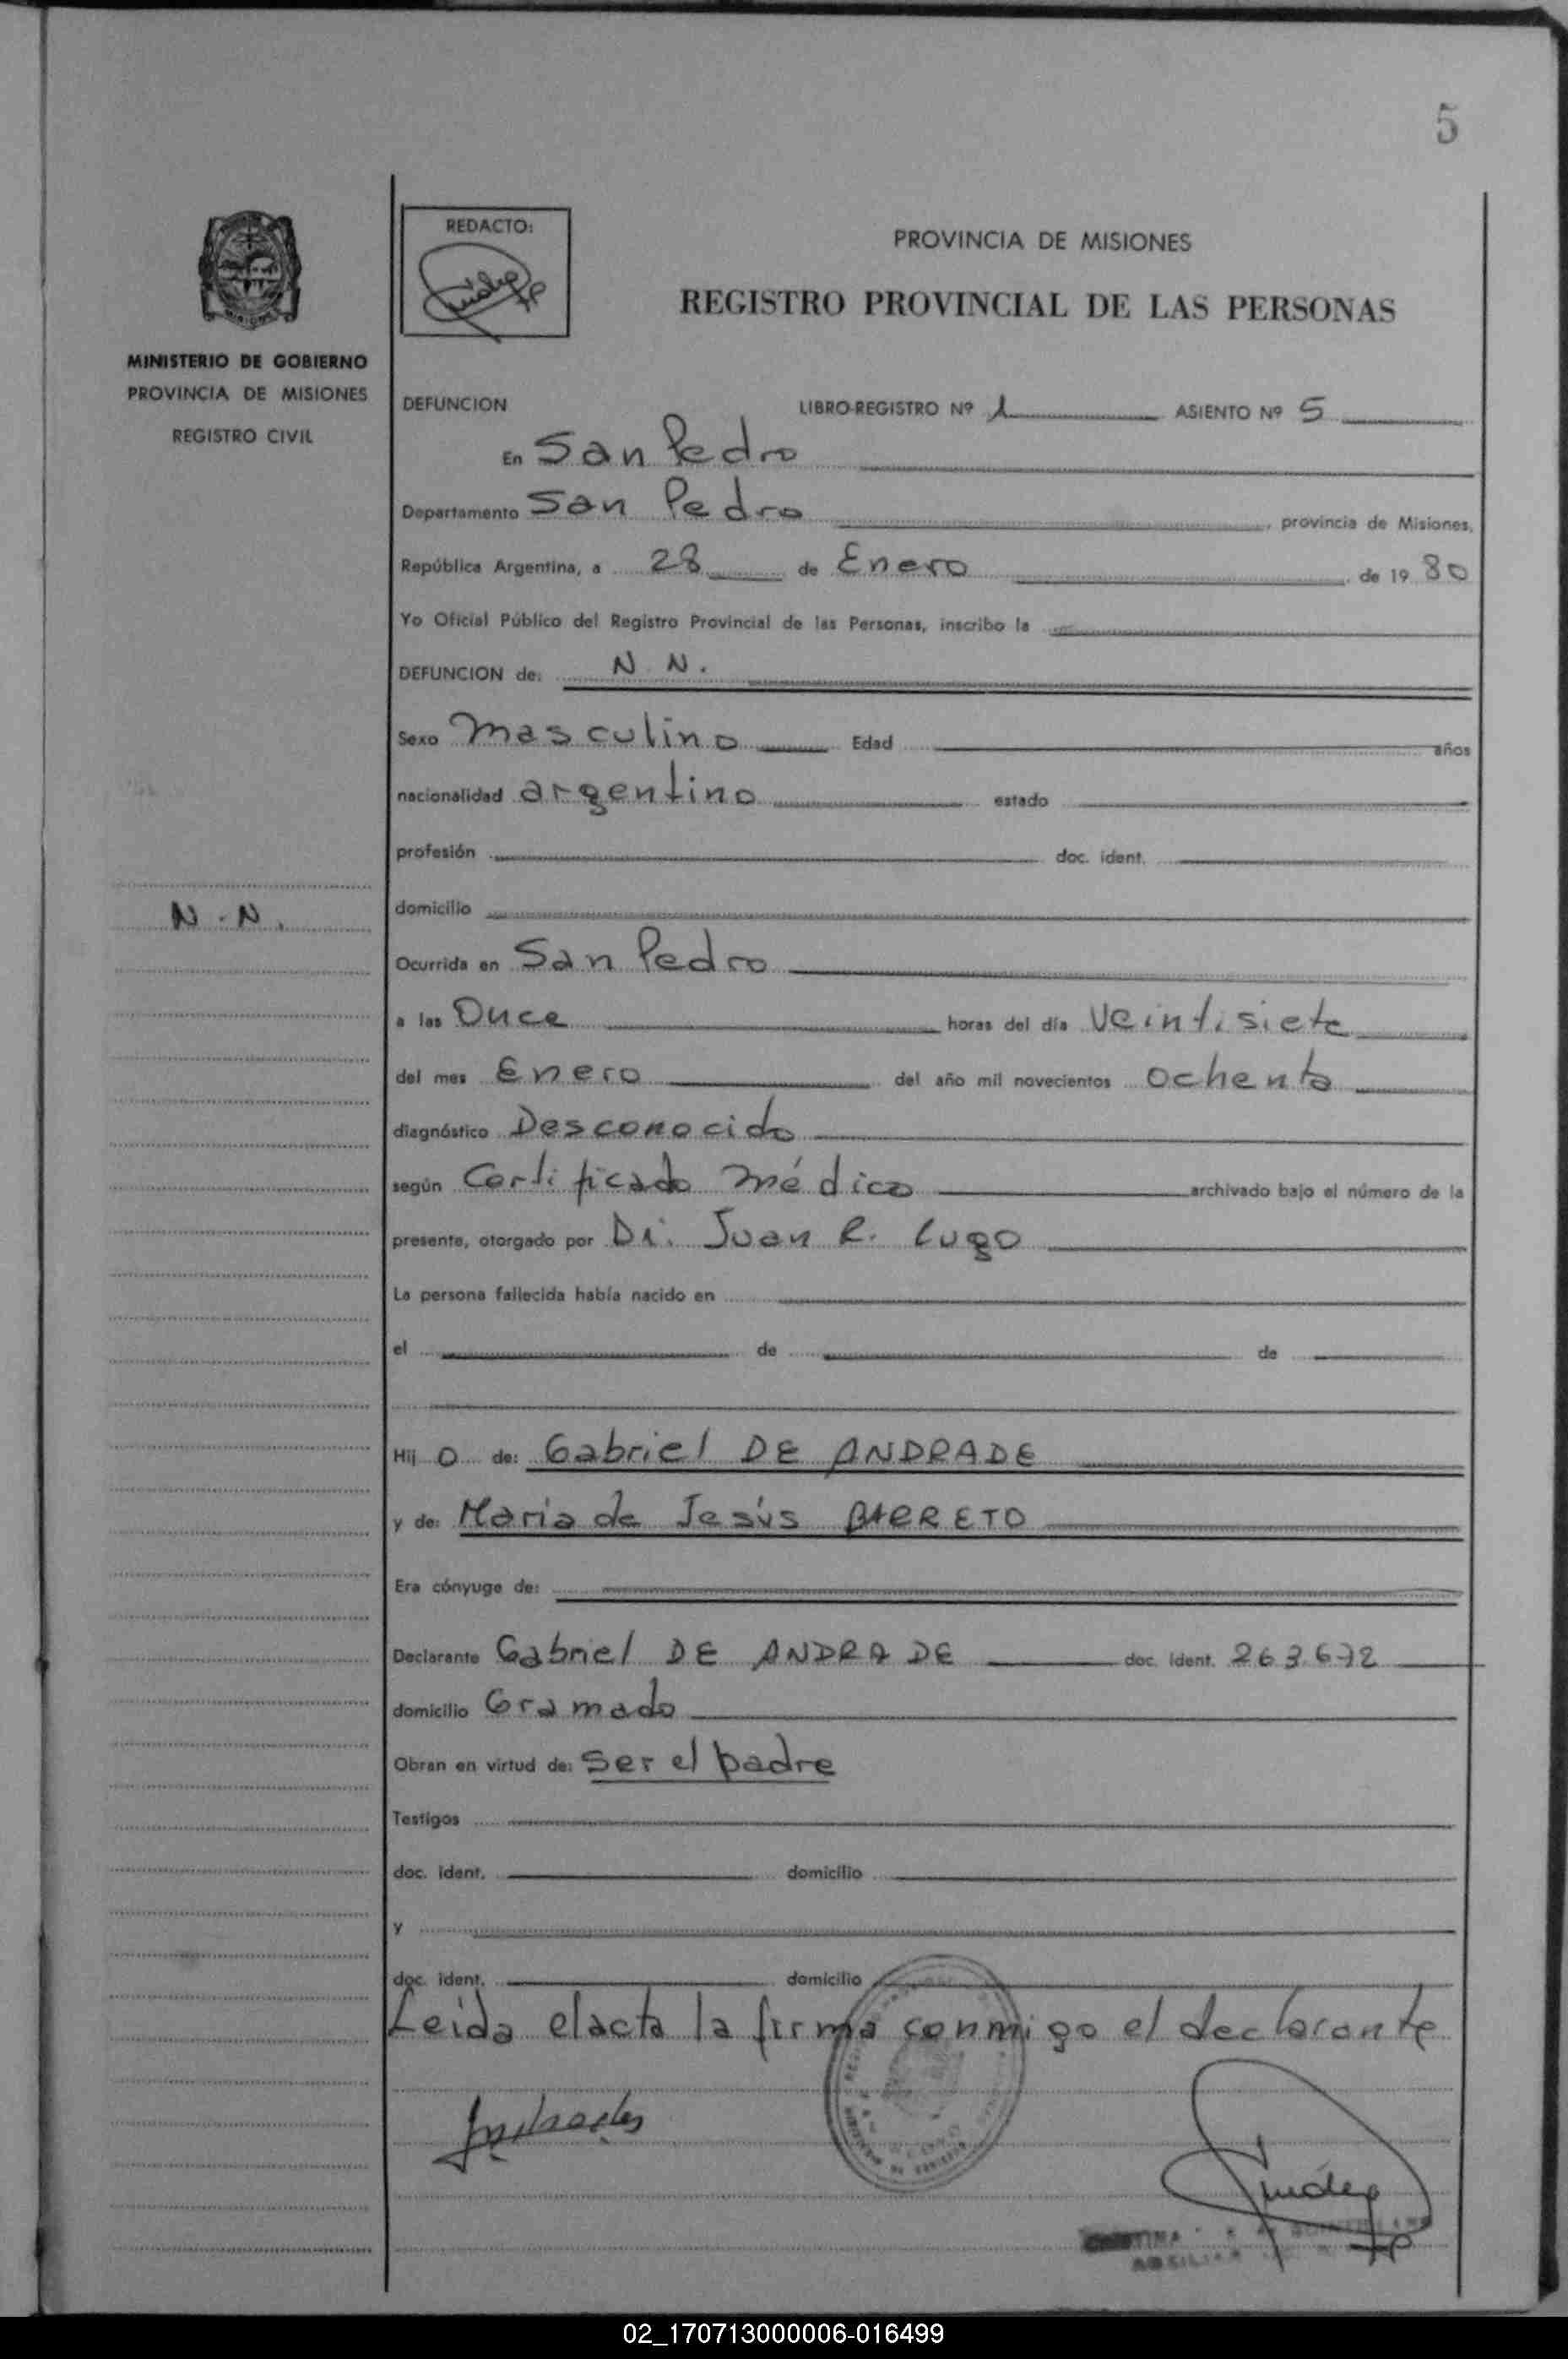 5
REDACTO:
PROVINCIA DE MISIONES
REGISTRO PROVINCIAL DE LAS PERSONAS
MINISTERIO DE GOBIERNO
PROVINCIA DE MISIONES
REGISTRO CIVIL
DEFUNCION LIBRO-REGISTRO Nº 1 ASIENTO Nº 5
En San Pedro
Departamento San Pedro, provincia de Misiones,
República Argentina, a 28 de Enero de 19 80
Yo Oficial Público del Registro Provincial de las Personas, inscribo la
DEFUNCION de: N. N.
Sexo Masculino Edad años
nacionalidad argentino estado
profesión doc. ident.
N. N.
domicilio
Ocurrida en San Pedro
a las Once horas del día Veintisiete
del mes Enero del año mil novecientos Ochenta
diagnóstico Desconocido
según Certificado médico archivado bajo el número de la
presente, otorgado por Dr. Juan R. Lugo
La persona fallecida había nacido en
el de de
Hij o de: Gabriel DE ANDRADE
y de: Maria de Jesús BARRETO
Era cónyuge de:
Declarante Gabriel DE ANDRADE doc. ident. 263.672
domicilio Gramado
Obran en virtud de: ser el padre
Testigos
doc. ident. domicilio
y
doc. ident. domicilio
Leida el acta la firma conmigo el declarante
02_170713000006-016499